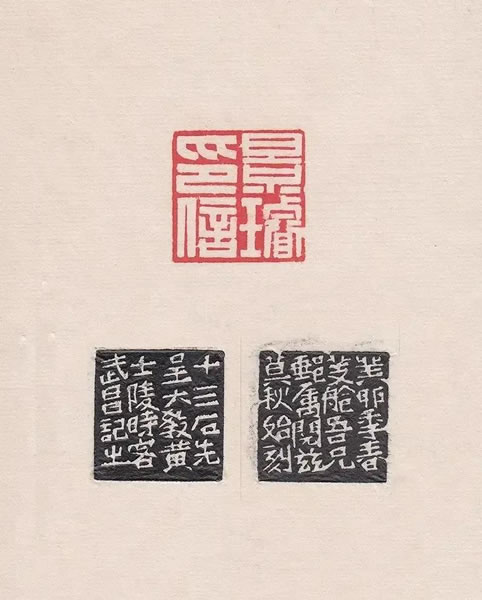 景璿
印信
癸卯季春
芰舲吾兄
郵屬閱茲
秋始刻
十三石先
呈大教黃
士陵時客
武昌記之